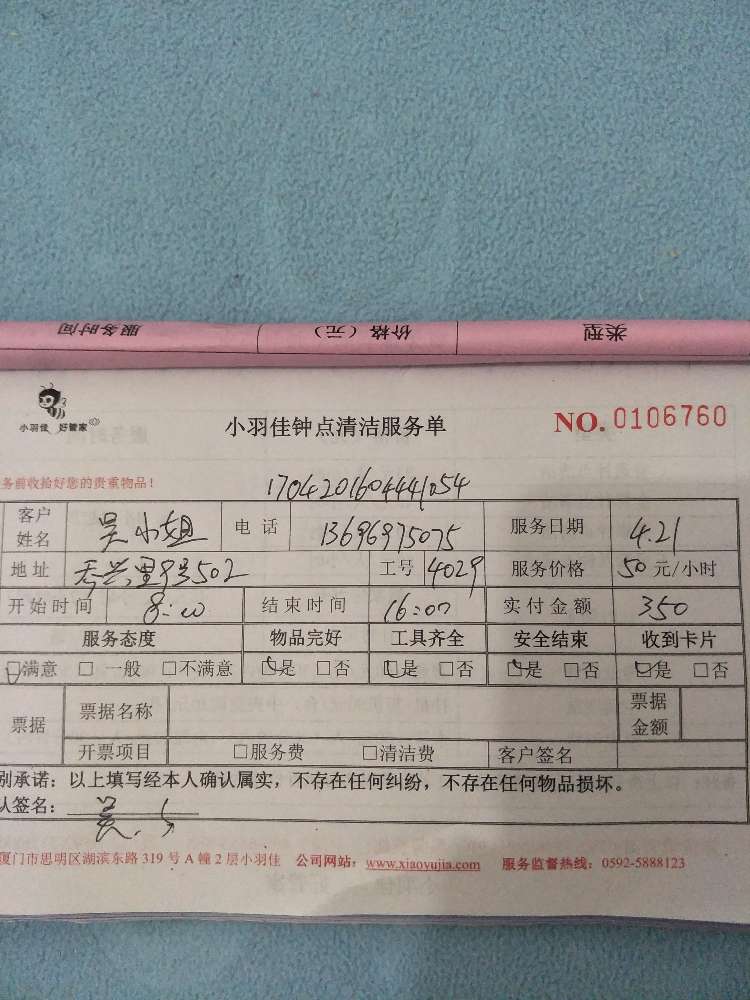 服务时间 价格（元） 类型
小羽佳 好管家
小羽佳钟点清洁服务单
NO. 0106760
务前收拾好您的贵重物品！
17042016044441054
客户姓名 吴小姐 电话 13696975075 服务日期 4.21
地址 兴里9号502 工号 4029 服务价格 50 元/小时
开始时间 8:00 结束时间 16:00 实付金额 350
服务态度 物品完好 工具齐全 安全结束 收到卡片
□满意 □一般 □不满意 □是 □否 □是 □否 □是 □否 □是 □否
票据 票据名称 票据金额
开票项目 □服务费 □清洁费 客户签名
别承诺：以上填写经本人确认属实，不存在任何纠纷，不存在任何物品损坏。
认签名：
厦门市思明区湖滨东路 319 号 A 幢 2 层小羽佳 公司网站：www.xiaoyujia.com 服务监督热线：0592-5888123